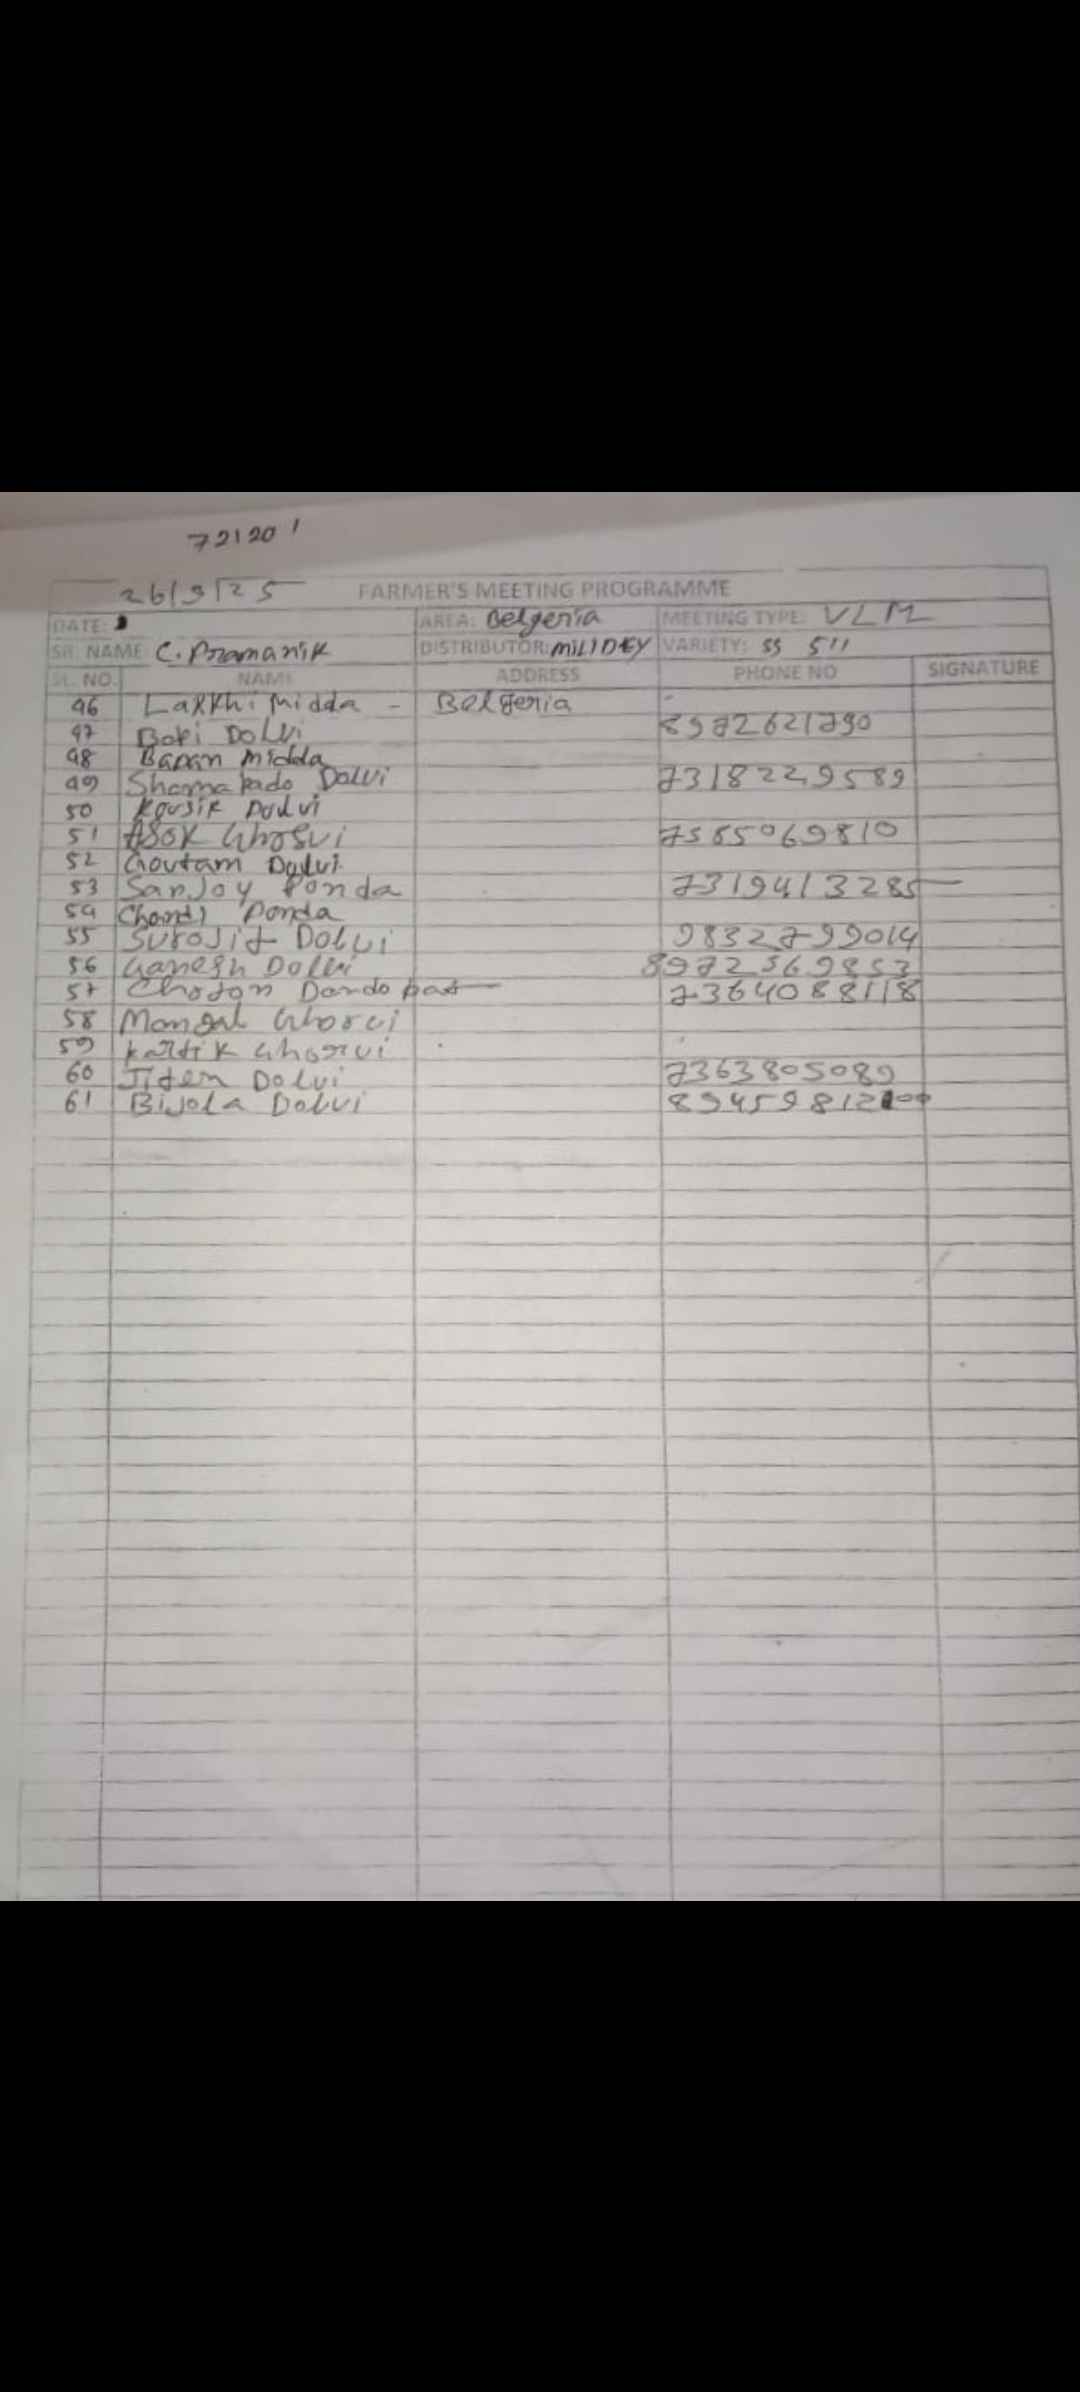 72120
26/9/25 FARMER'S MEETING PROGRAMME
DATE: AREA: Belgeria MEETING TYPE: VLM
SR. NAME C. Pramanik DISTRIBUTOR: MILI DEY VARIETY: SS 511
SL. NO. NAME ADDRESS PHONE NO SIGNATURE
46 Lakkhi Midda - Belgeria
47 Boki Dolui 8972621790
48 Bapan Midda
49 Shamapado Dalui 7318229589
50 Kousik Dolui
51 Asok Ghorui 7565069810
52 Goutam Dolui
53 Sanjoy Ponda 7319413285
54 Ponda
55 Surojit Dolui 9832799014
56 Ganesh Dolui 8972569853
57 Choton Dandapat 7364088118
58 Mongal Ghorui
59 Kartik Ghorui
60 Jiten Dolui 7363805089
61 Bijola Dolui